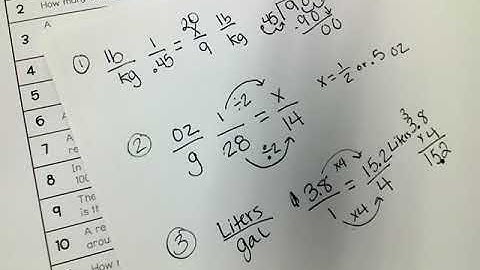 2 How many
3 A
4
5
6 A
7 A
re
8 In
100
9 The
is th
10 A re
arou
How
① lb/kg 1/.45 = 20 x/9 lb/kg
.45 9.00
.90
00
② oz/g 1/28 = x/14 ÷2 ÷2
x = 1/2 or .5 oz
③ Liters/gal 3.8/1 = 15.2 Liters/4 x4 x4
3
3.8
x 4
15.2